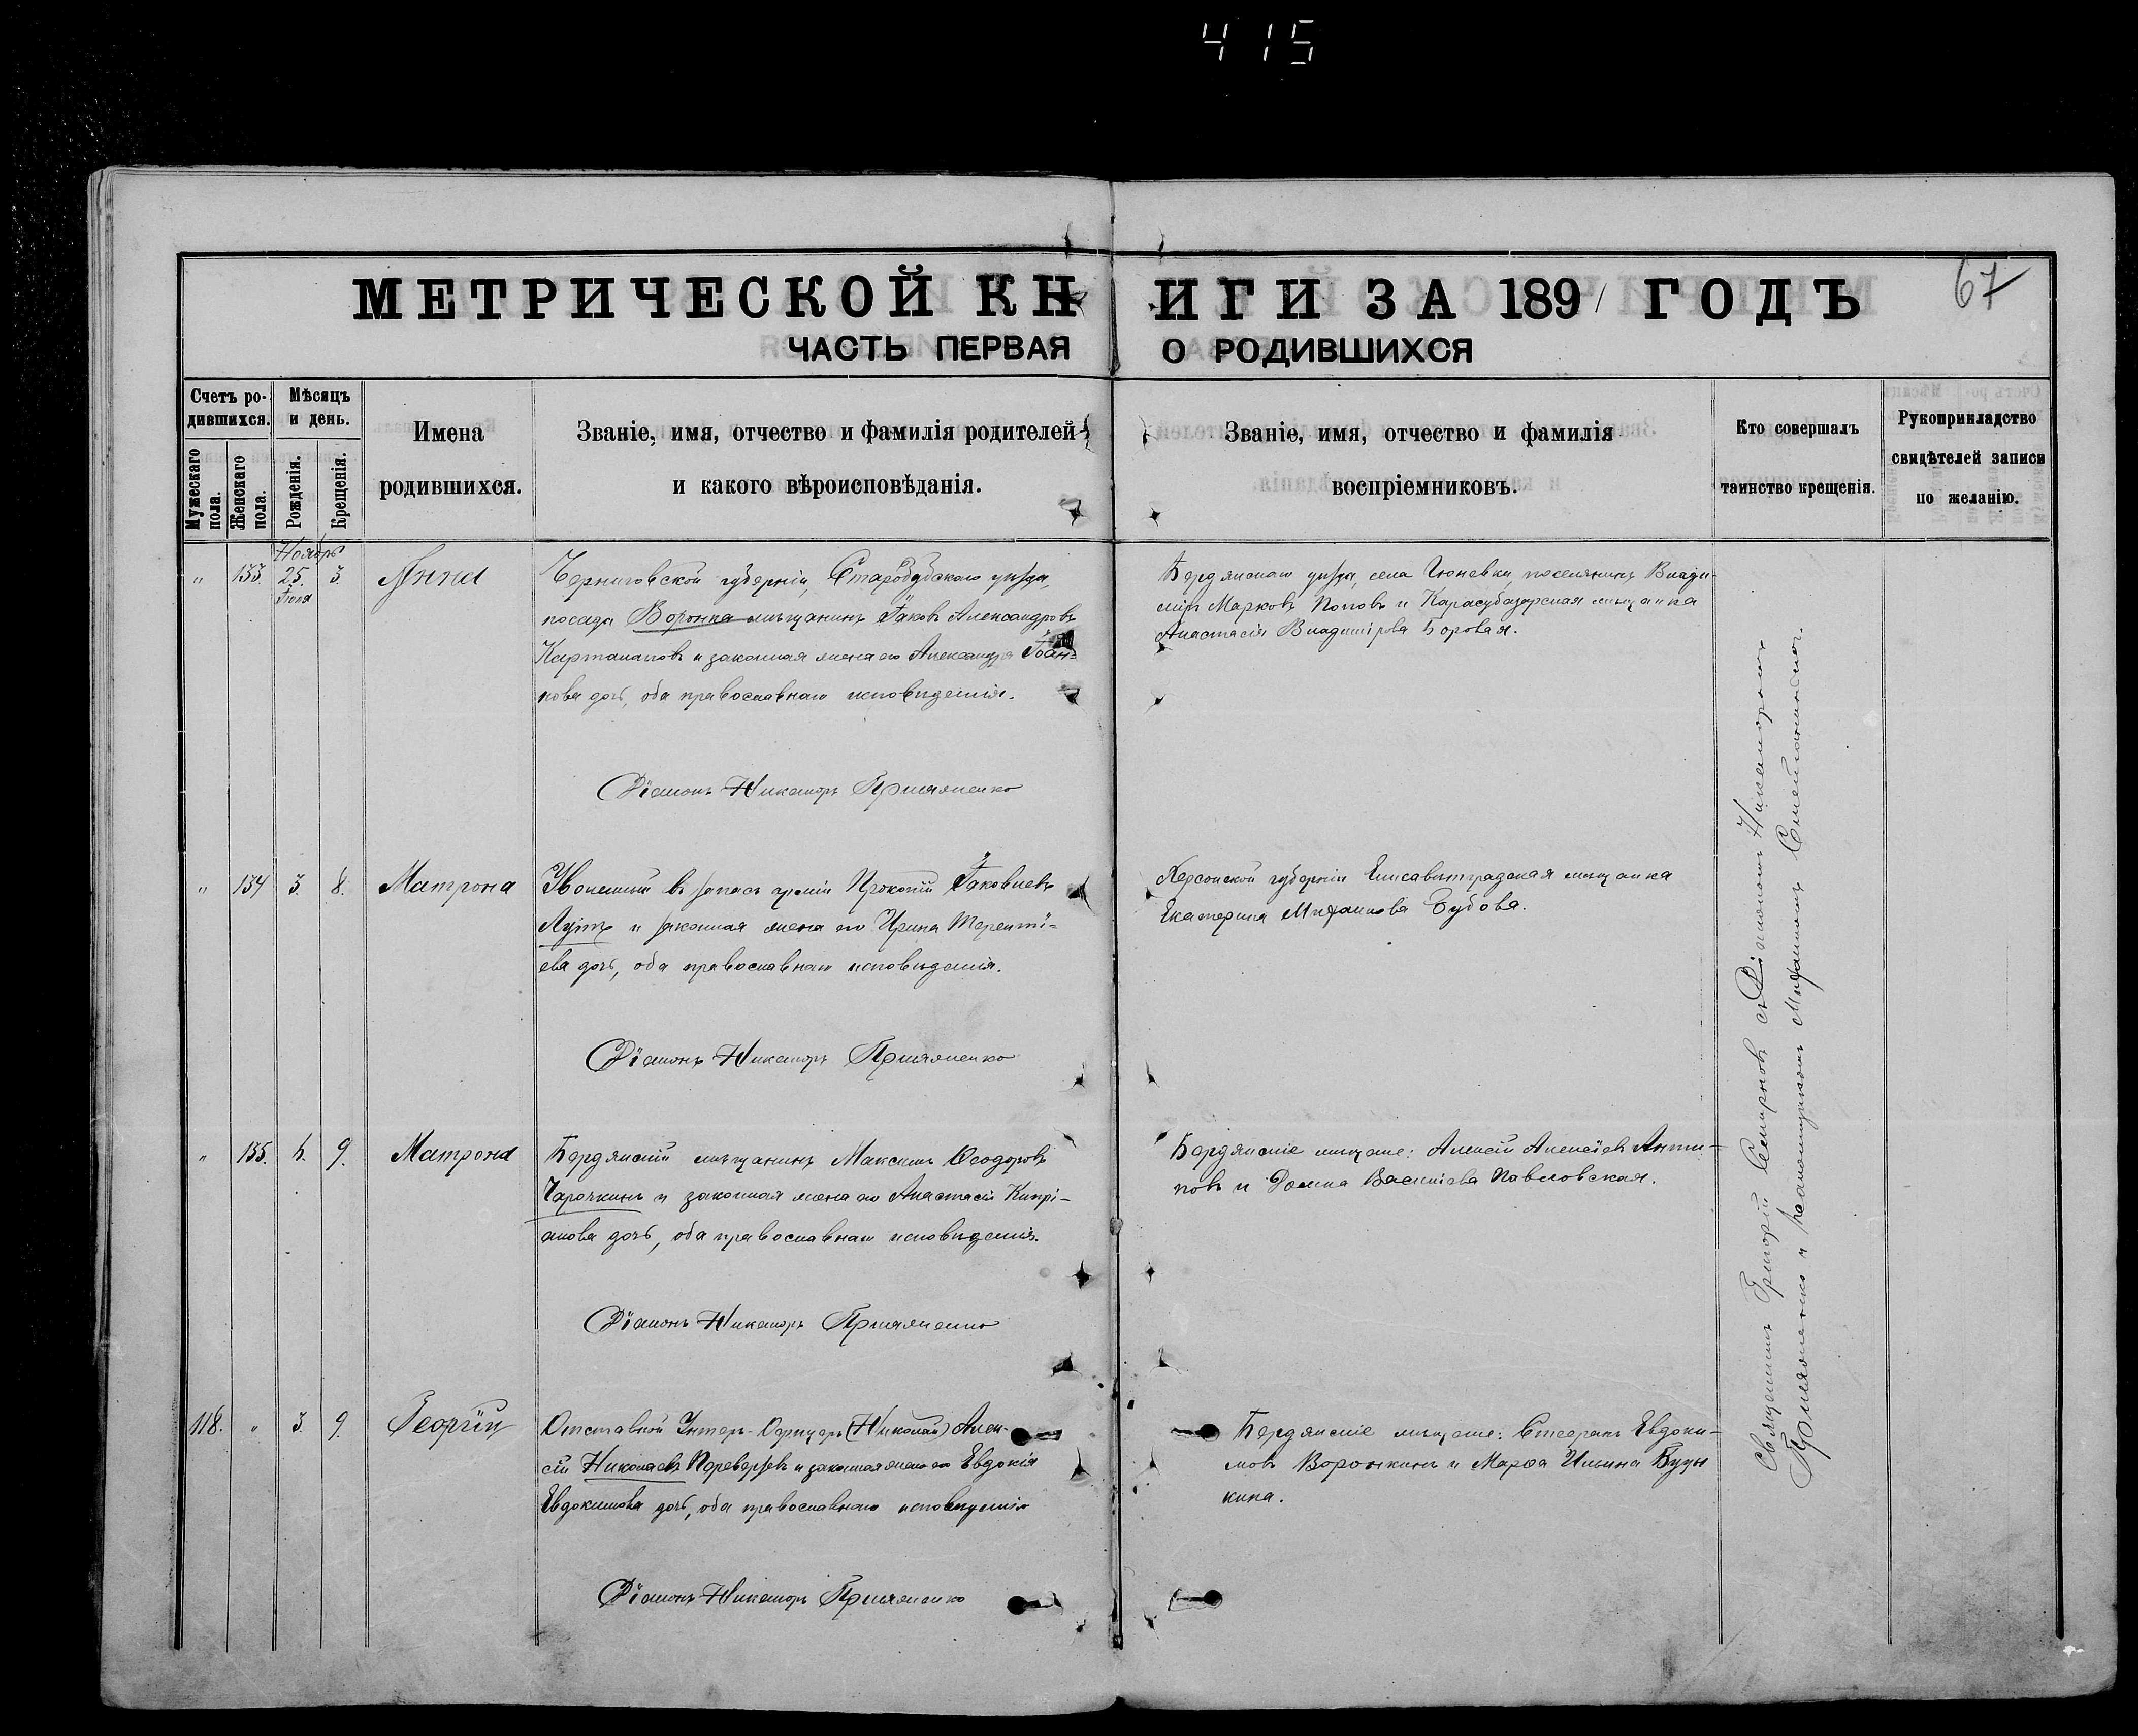 415
67
МЕТРИЧЕСКОЙ КНИГИ ЗА 1891 ГОДЪ
ЧАСТЬ ПЕРВАЯ О РОДИВШИХСЯ
Счетъ ро-
дившихся.
Мужескаго пола.
Женскаго пола.
Мѣсяцъ
и день.
Рожденія.
Крещенія.
Имена
родившихся.
Званіе, имя, отчество и фамилія родителей
и какого вѣроисповѣданія.
Званіе, имя, отчество и фамилія
воспріемниковъ.
Кто совершалъ
таинство крещенія.
Рукоприкладство
свидѣтелей записи
по желанію.
Ноябрь
" 133. 25. 3. Анна
Іюля
Черниговской губерніи, Стародубскаго уѣзда,
посада Воронка мѣщанинъ Іаковъ Александровъ
Карташовъ и законная жена его Александра Іоан-
нова дочь, оба православнаго исповѣданія.
Бердянскаго уѣзда, села Гюневки, поселянинъ Влади-
міръ Марковъ Поповъ и Карасубазарская мѣщанка
Анастасія Владимірова Боровая.
Діаконъ Никаноръ Пришляненко
" 134 3. 8. Матрона
Уволенный въ запасъ арміи Прокопій Іаковлевъ
и законная жена его Ирина Теренті-
ева дочь, оба православнаго исповѣданія.
Херсонской губерніи Елисаветградская мѣщанка
Екатерина Михаилова Бубова.
Діаконъ Никаноръ Пришляненко
" 135. 9. Матрона
Бердянскій мѣщанинъ Максимъ Ѳеодоровъ
Чарочкинъ и законная жена его Анастасія Кипрі-
анова дочь, оба православнаго исповѣданія.
Бердянскіе мѣщане: Алексѣй Алексѣевъ Анти-
повъ и Домна Василіева Павловская.
Діаконъ Никаноръ Пришляненко
118. " 3. 9. Георгій
Отставной Унтеръ-Офицеръ (Николай) Алек-
сѣй Николаевъ Переверзевъ и законная жена его Евдокія
Евдокимова дочь, оба православнаго исповѣданія
Бердянскіе мѣщане: Стефанъ Евдоки-
мовъ Воронкинъ и Марѳа Ильина
кина.
Діаконъ Никаноръ Пришляненко
Священникъ Григорій съ Діакономъ Никаноромъ
Пришляненко и псаломщикомъ Михаиломъ